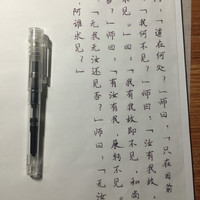 「道在何处?」师曰:「只在目前
「我何不见?」师曰:「汝有我故,
不见。」曰:「我有我故即不见,和尚
?」师曰:「有汝有我,展转不见。
「无我无汝还见否?」师曰:「无汝
阿谁求见?」